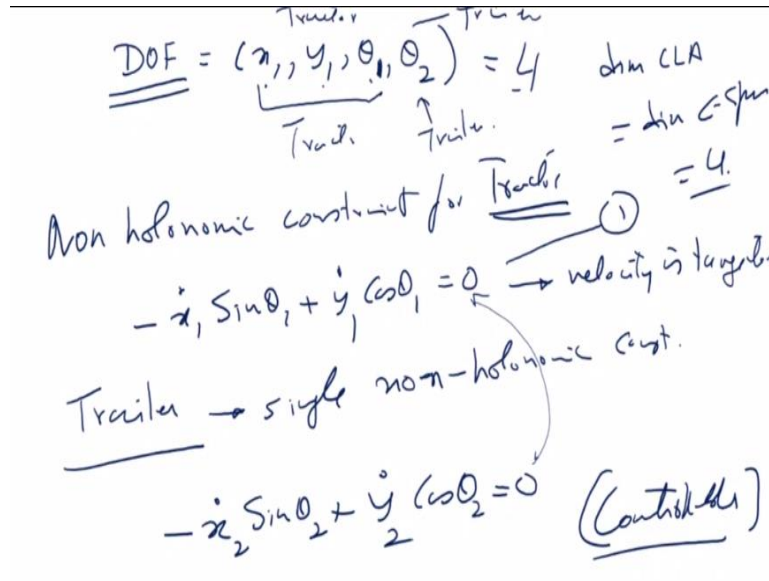 Tractor Trailer
DOF = (x₁, y₁, θ₁, θ₂) = 4 dim CLA
Tract. Trailer. = dim C-Spa
= 4.
Non holonomic constraint for Tractor
①
- ẋ₁ Sinθ₁ + ẏ₁ Cosθ₁ = 0 → velocity is tangent
Trailer → single non-holonomic const.
- ẋ₂ Sinθ₂ + ẏ₂ Cosθ₂ = 0 (Controllable)